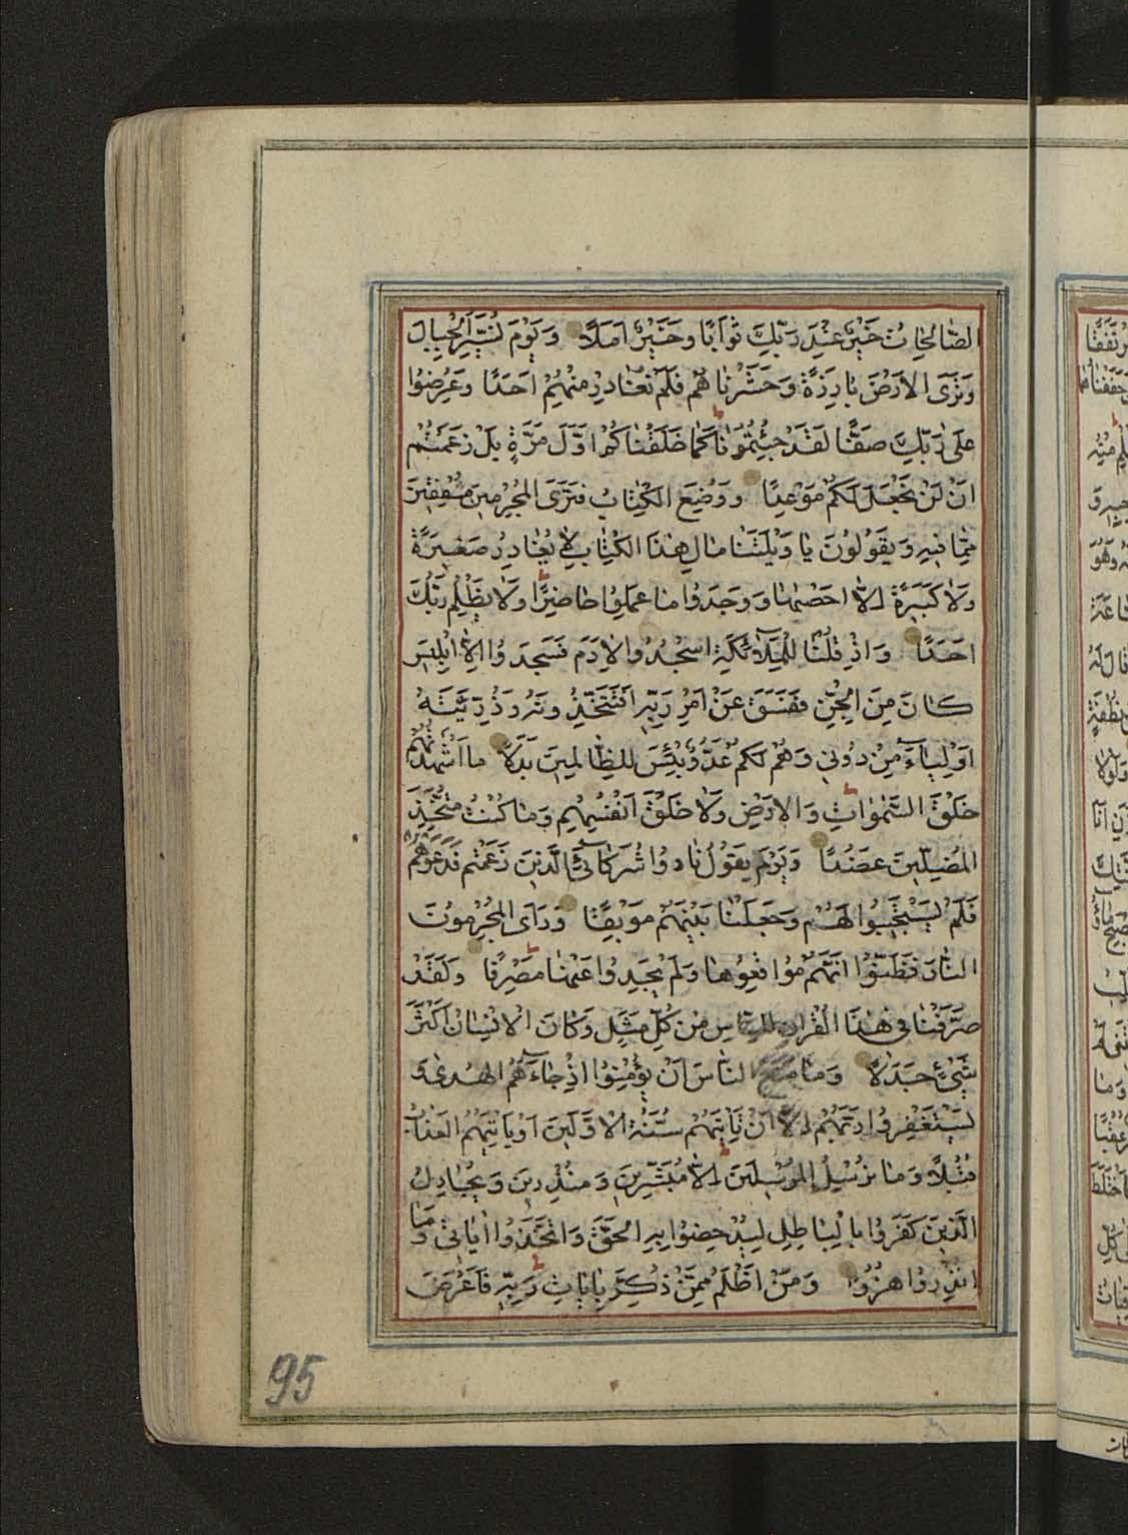 الصَّالِحَاتُ خَيْرٌ عِنْدَ رَبِّكَ ثَوَابًا وَخَيْرٌ اَمَلًا وَيَوْمَ نُسَيِّرُ الْجِبَالَ
وَتَرَى الْاَرْضَ بَارِزَةً وَحَشَرْنَا هُمْ فَلَمْ نُغَادِرْ مِنْهُمْ اَحَدًا وَعُرِضُوا
عَلٰى رَبِّكَ صَفًّا لَقَدْ جِئْتُمُونَا كَمَا خَلَقْنَاكُمْ اَوَّلَ مَرَّةٍ بَلْ زَعَمْتُمْ
اَنْ لَنْ نَجْعَلَ لَكُمْ مَوْعِدًا وَوُضِعَ الْكِتَابُ فَتَرَى الْمُجْرِمِينَ مُشْفِقِينَ
مِمَّا فِيهِ وَيَقُولُونَ يَا وَيْلَتَنَا مَالِ هٰذَا الْكِتَابِ لَا يُغَادِرُ صَغِيرَةً
وَلَا كَبِيرَةً اِلَّا اَحْصٰيهَا وَوَجَدُوا مَا عَمِلُوا حَاضِرًا وَلَا يَظْلِمُ رَبُّكَ
اَحَدًا وَاِذْ قُلْنَا لِلْمَلٰٓئِكَةِ اسْجُدُوا لِاٰدَمَ فَسَجَدُوا اِلَّا اِبْلِيسَ
كَانَ مِنَ الْجِنِّ فَفَسَقَ عَنْ اَمْرِ رَبِّهِ اَفَتَتَّخِذُونَهُ وَذُرِّيَّتَهُ
اَوْلِيَآءَ مِنْ دُونِي وَهُمْ لَكُمْ عَدُوٌّ بِئْسَ لِلظَّالِمِينَ بَدَلًا مَا اَشْهَدْتُهُمْ
خَلْقَ السَّمٰوَاتِ وَالْاَرْضِ وَلَا خَلْقَ اَنْفُسِهِمْ وَمَا كُنْتُ مُتَّخِذَ
الْمُضِلِّينَ عَضُدًا وَيَوْمَ يَقُولُ نَادُوا شُرَكَآئِيَ الَّذِينَ زَعَمْتُمْ فَدَعَوْهُمْ
فَلَمْ يَسْتَجِيبُوا لَهُمْ وَجَعَلْنَا بَيْنَهُمْ مَوْبِقًا وَرَاَى الْمُجْرِمُونَ
النَّارَ فَظَنُّوا اَنَّهُمْ مُوَاقِعُوهَا وَلَمْ يَجِدُوا عَنْهَا مَصْرِفًا وَلَقَدْ
صَرَّفْنَا فِي هٰذَا الْقُرْاٰنِ لِلنَّاسِ مِنْ كُلِّ مَثَلٍ وَكَانَ الْاِنْسَانُ اَكْثَرَ
شَيْءٍ جَدَلًا وَمَا مَنَعَ النَّاسَ اَنْ يُؤْمِنُوا اِذْ جَآءَهُمُ الْهُدٰى وَ
يَسْتَغْفِرُوا رَبَّهُمْ اِلَّا اَنْ تَاْتِيَهُمْ سُنَّةُ الْاَوَّلِينَ اَوْ يَاْتِيَهُمُ الْعَذَابُ
قُبُلًا وَمَا نُرْسِلُ الْمُرْسَلِينَ اِلَّا مُبَشِّرِينَ وَمُنْذِرِينَ وَيُجَادِلُ
الَّذِينَ كَفَرُوا بِالْبَاطِلِ لِيُدْحِضُوا بِهِ الْحَقَّ وَاتَّخَذُوا اٰيَاتِي وَمَا
اُنْذِرُوا هُزُوًا وَمَنْ اَظْلَمُ مِمَّنْ ذُكِّرَ بِاٰيَاتِ رَبِّهِ فَاَعْرَضَ
95